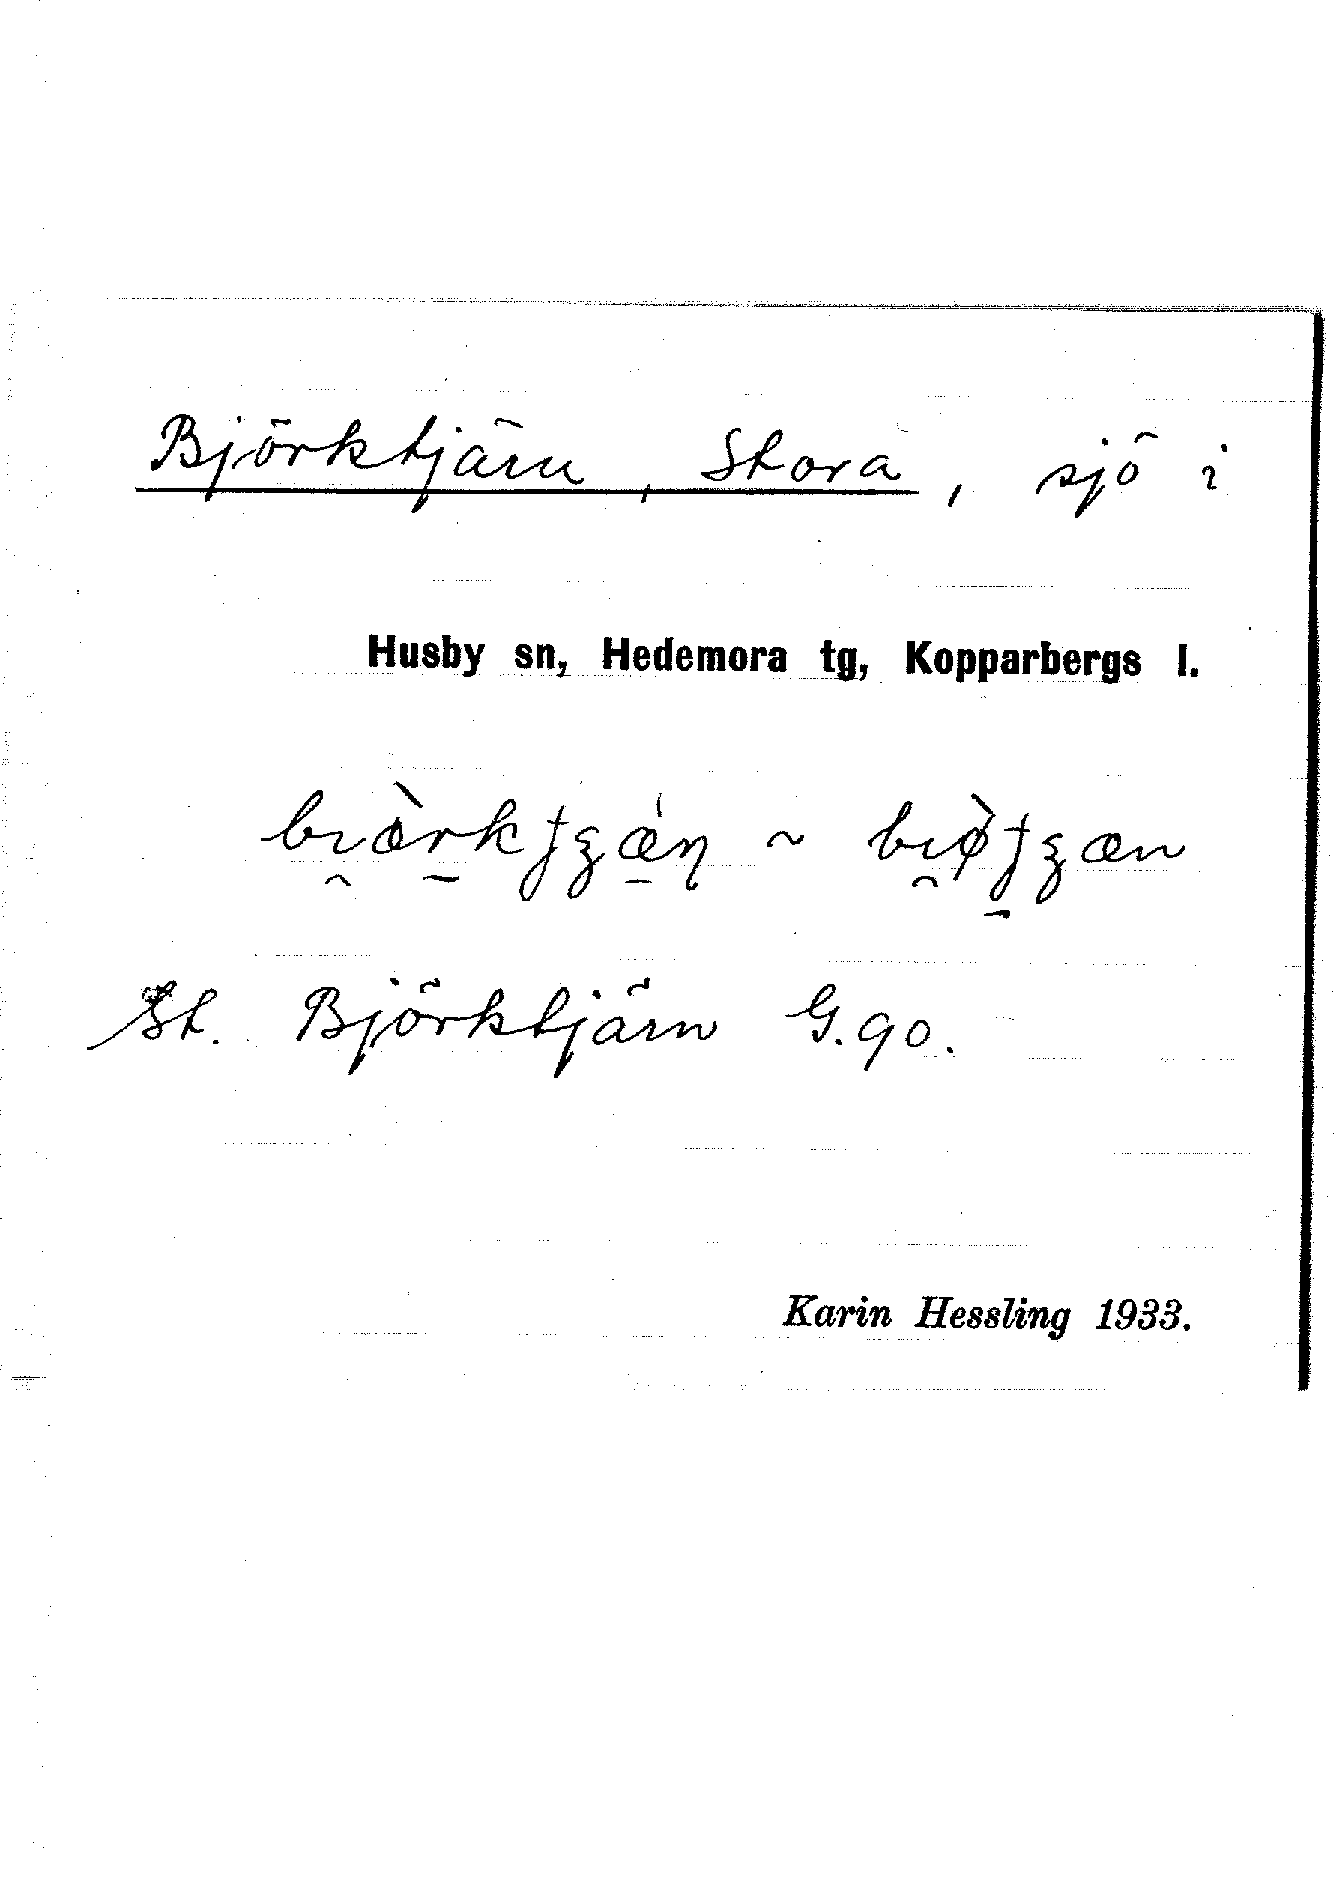 Björktjärn, Stora, sjö i
Husby sn, Hedemora tg, Kopparbergs l.
~
St. Björktjärn G.90.
Karin Hessling 1933.